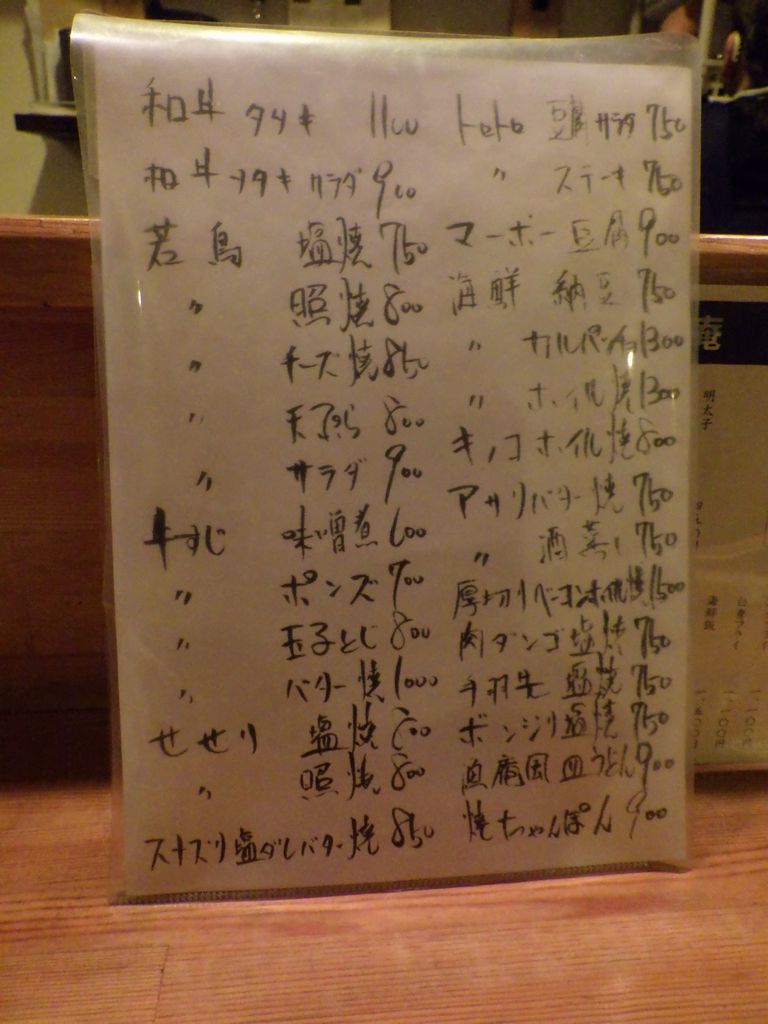 和牛 タタキ 1100
和牛 タタキ サラダ 900
若鳥 塩焼 750
〃 照焼 800
〃 チーズ焼 850
〃 天ぷら 800
〃 サラダ 900
牛すじ 味噌煮 600
〃 ポンズ 700
〃 玉子とじ 800
〃 バター焼 1000
せせり 塩焼 700
〃 照焼 800
スナズリ塩ダレバター焼 850
トロトロ 豆腐サラダ 750
〃 ステーキ 750
マーボー豆腐 900
海鮮 納豆 750
〃 カルパッチョ 1300
〃 ホイル焼 1300
キノコ ホイル焼 800
アサリバター焼 750
〃 酒蒸し 750
厚切りベーコンホイル焼 1500
肉ダンゴ塩焼 750
手羽先 塩焼 750
ボンジリ塩焼 750
風 皿うどん 900
焼ちゃんぽん 900
庵
明太子
海鮮飯
白身フライ